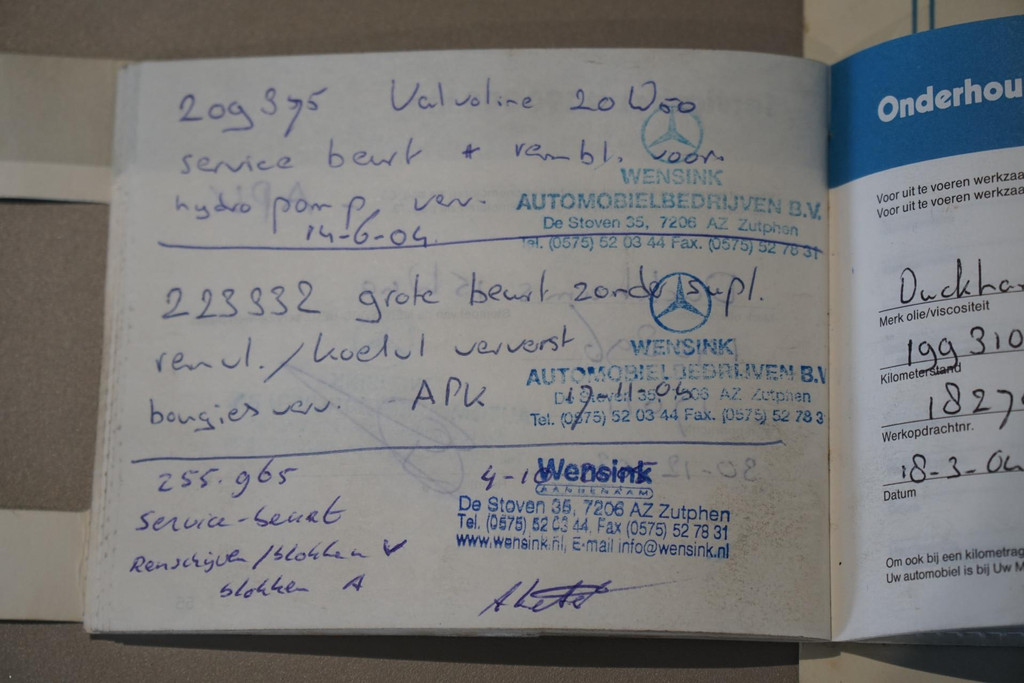 209375 Valvoline 20W50
service beurt + rembl. voor.
hydro pomp ver.
14-6-04
WENSINK
AUTOMOBIELBEDRIJVEN B.V.
De Stoven 35, 7206 AZ Zutphen
Tel. (0575) 52 03 44 Fax. (0575) 52 78 31
223332 grote beurt zonder supl.
remvl./koelvl ververst
bougies verv. - APK
WENSINK
AUTOMOBIELBEDRIJVEN B.V
De Stoven 35, 7206 AZ Zutphen
Tel. (0575) 52 03 44 Fax. (0575) 52 78 3
255.965
service-beurt
Remschijven/blokken V
blokken A
Wensink
De Stoven 35, 7206 AZ Zutphen
Tel. (0575) 52 03 44, Fax (0575) 52 78 31
www.wensink.nl, E-mail info@wensink.nl
Onderhou
Voor uit te voeren werkzaa
Voor uit te voeren werkzaa
Duckha
Merk olie/viscositeit
199 310
Kilometerstand
1827
Werkopdrachtnr.
18-3-04
Datum
Om ook bij een kilometrag
Uw automobiel is bij Uw M